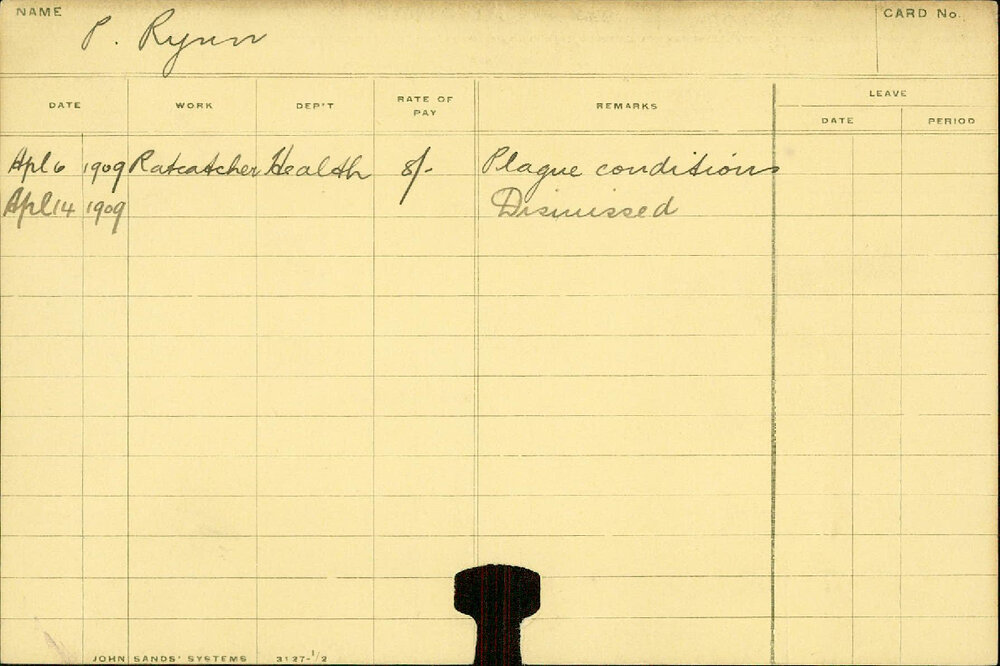 NAME P. Rynn CARD No.
DATE WORK DEP'T RATE OF PAY REMARKS LEAVE
DATE PERIOD
Apl 6 1909 Ratcatcher Health 8/- Plague conditions
Apl 14 1909 Dismissed
JOHN SANDS' SYSTEMS 3127-1/2